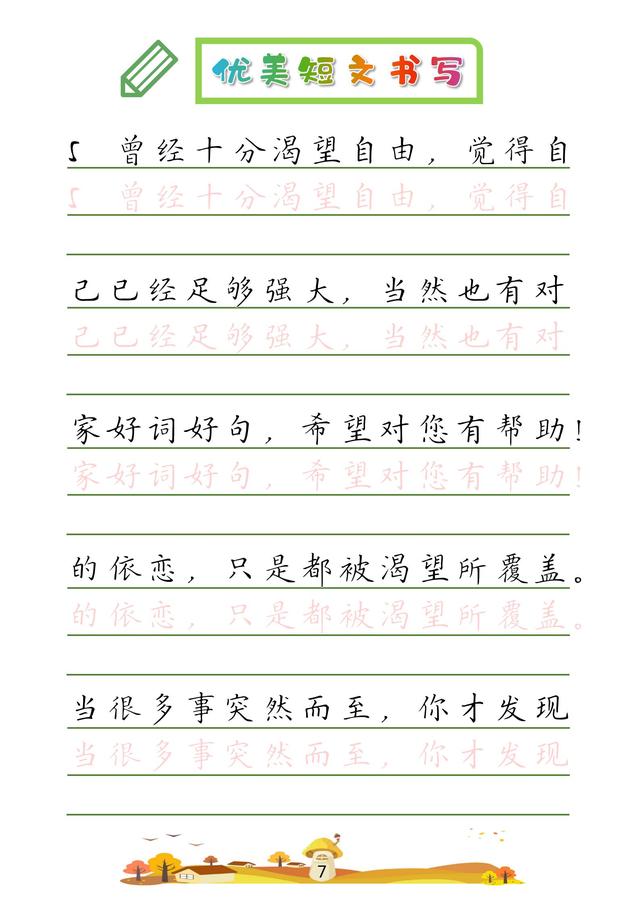 优美短文书写
ς 曾经十分渴望自由，觉得自
ς 曾经十分渴望自由，觉得自
己已经足够强大，当然也有对
己已经足够强大，当然也有对
家好词好句，希望对您有帮助！
家好词好句，希望对您有帮助！
的依恋，只是都被渴望所覆盖。
的依恋，只是都被渴望所覆盖。
当很多事突然而至，你才发现
当很多事突然而至，你才发现
7